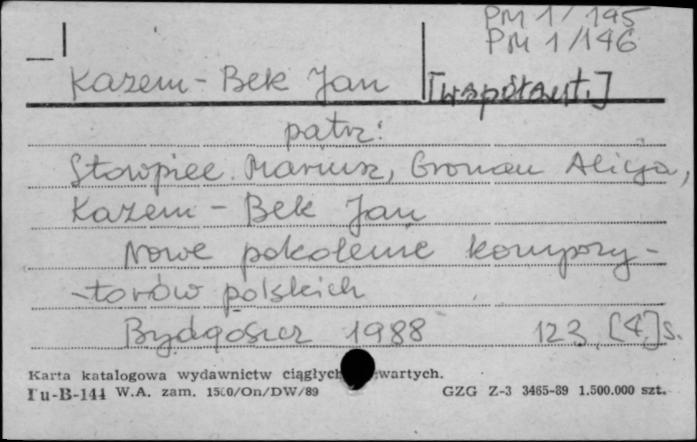 PM 1/145
PM 1/146
Kazem-Bek Jan [współaut.]
patrz:
Słowpiec Mariusz, Gronau Alicja,
Kazem-Bek Jan
Nowe pokolenie kompozy-
-torów polskich
Bydgoszcz 1988 123, [4] s.
Karta katalogowa wydawnictw ciągłych wartych.
Pu-B-144 W.A. zam. 1500/On/DW/89 GZG Z-3 3465-89 1.500.000 szt.